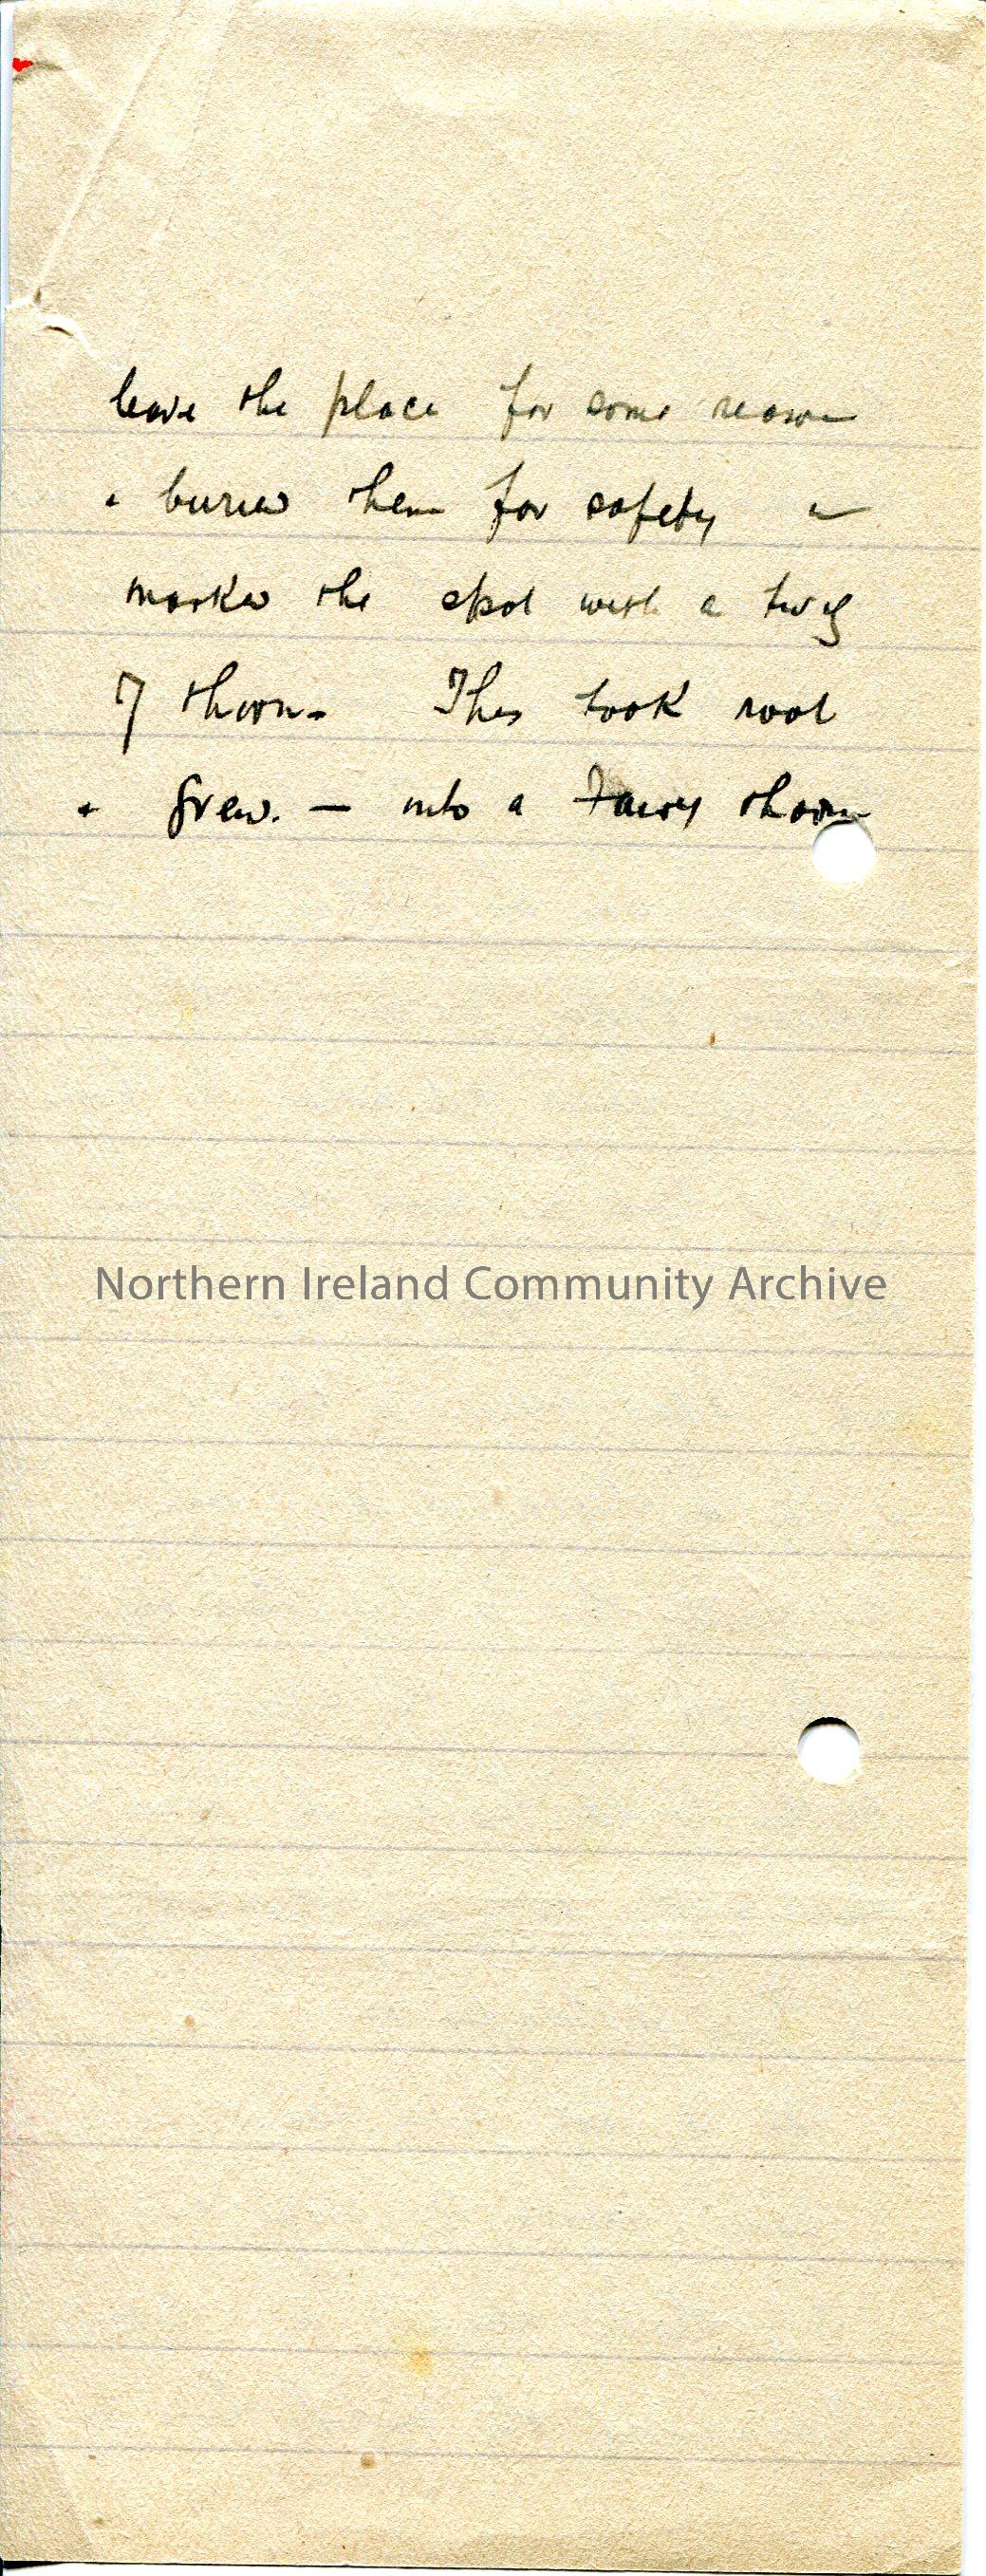 leave the place for some reason
& buried them for safety &
marked the spot with a twig
of thorn. This took root
& grew. — into a Fairy thorn
Northern Ireland Community Archive